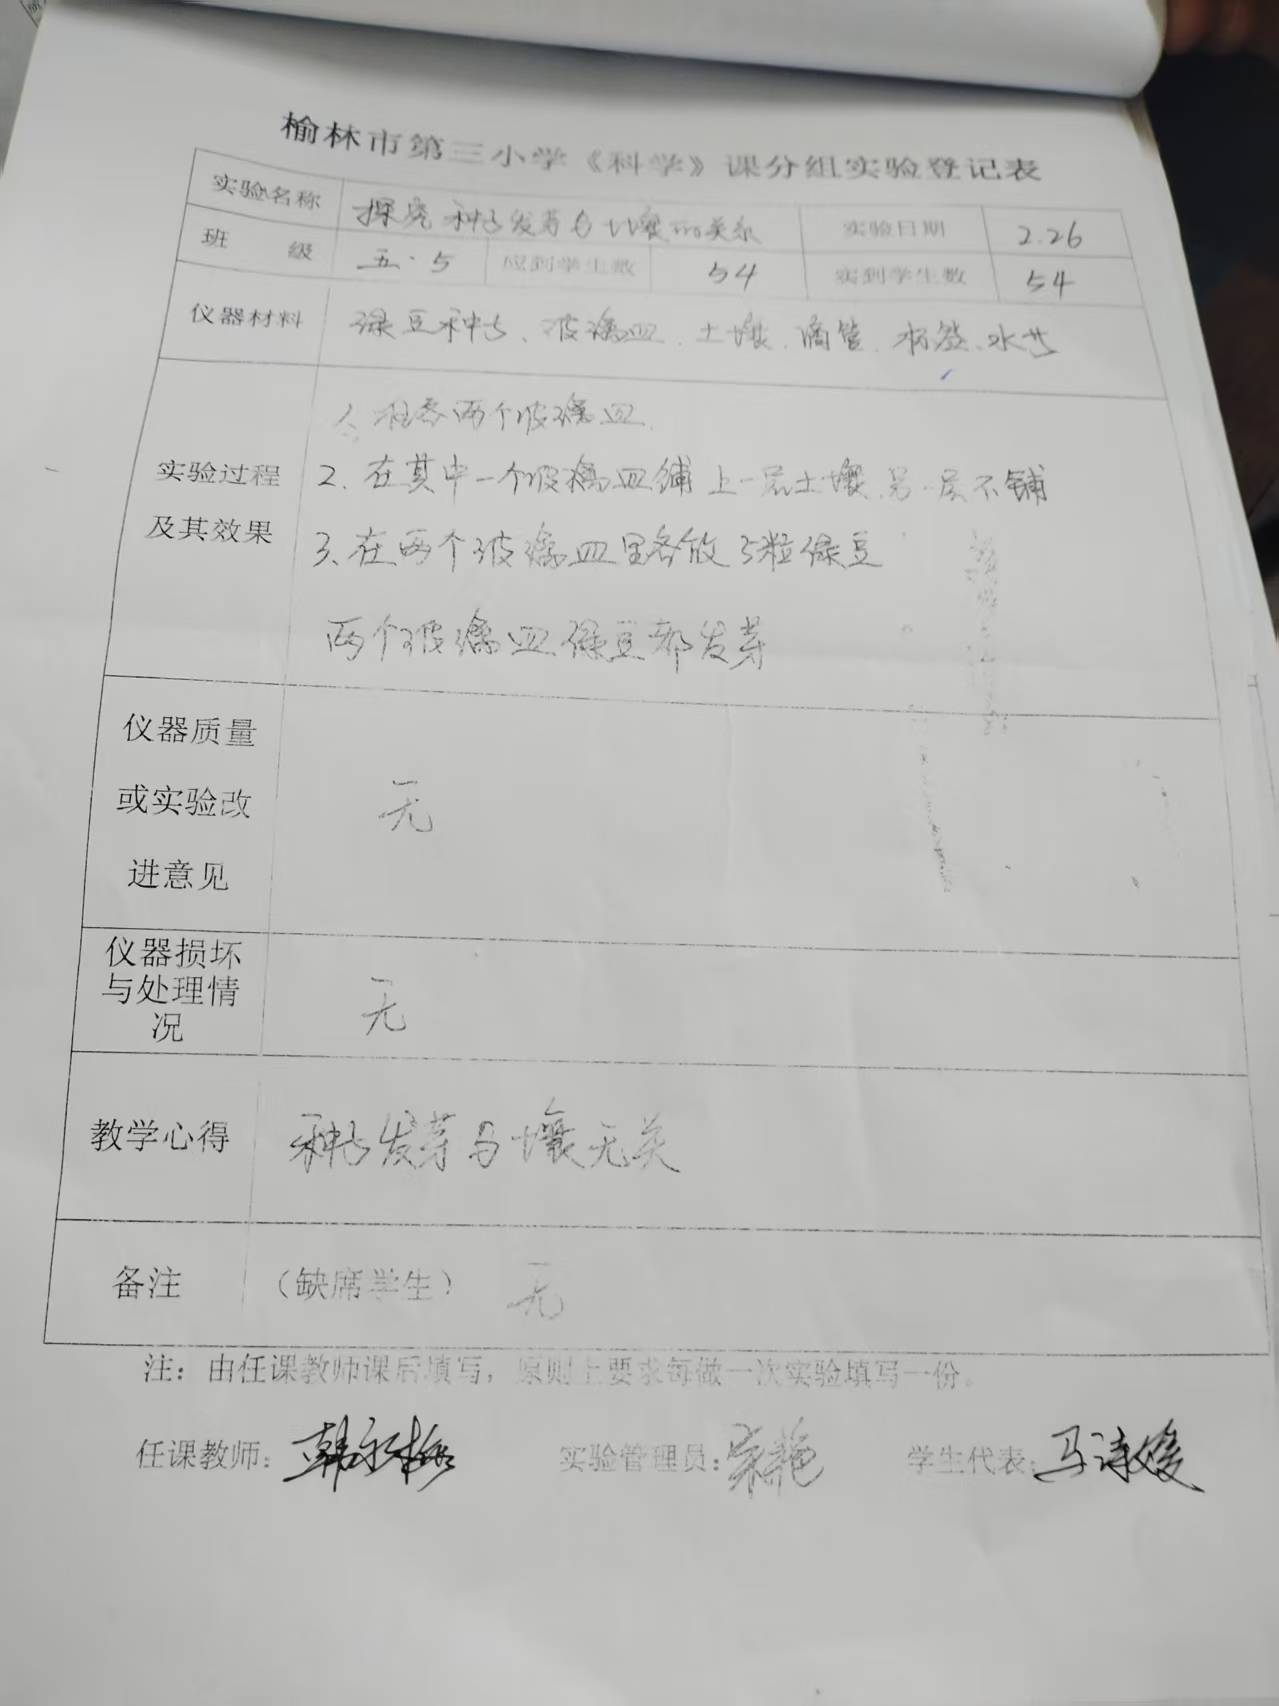 榆林市第三小学《科学》课分组实验登记表
实验名称 探究种子发芽与土壤的关系 实验日期 2.26
班 级 五.5 应到学生数 54 实到学生数 54
仪器材料 绿豆种子、玻璃皿、土壤、滴管、标签、水
1、准备两个玻璃皿
实验过程 2、在其中一个玻璃皿铺上一层土壤,另一层不铺
及其效果 3、在两个玻璃皿里各放5粒绿豆
两个玻璃皿绿豆都发芽
仪器质量
或实验改 无
进意见
仪器损坏
与处理情 无
况
教学心得 种子发芽与土壤无关
备注 (缺席学生) 无
注:由任课教师课后填写,原则上要求每做一次实验填写一份。
任课教师: 实验管理员: 宋艳 学生代表: 马诗媛